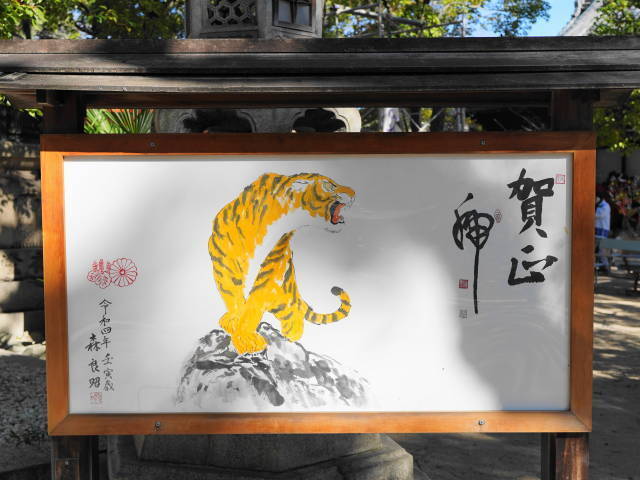 賀正
虎
令和四年 壬寅歳
森 良昭